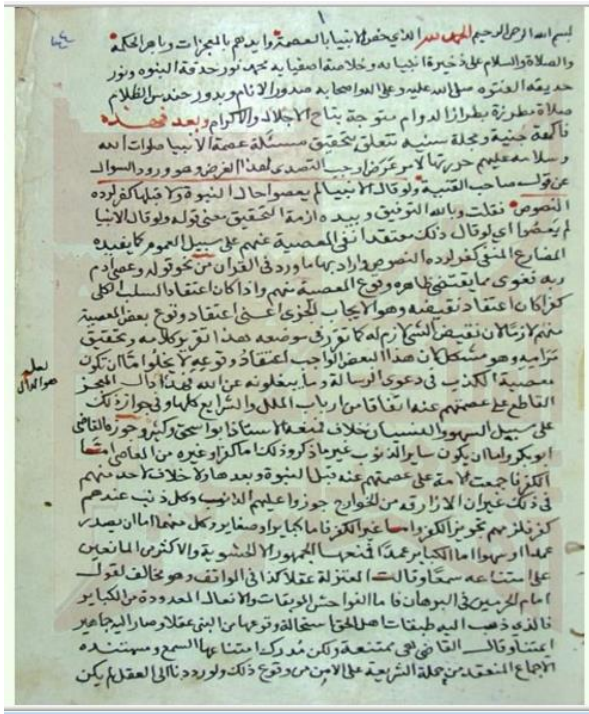 ١
بسم الله الرحمن الرحيم الحمد لله الذي خص الانبيا بالعصمة وايدهم بالمعجزات وباهر الحكمة
والصلاة والسلام على ذخيرة انبيايه وخلاصة اصفيايه محمد نور حدقة النبوه ونور
حديقه الفتوه صلى الله عليه وعلى اله واصحابه صدور الانام وبدور حندس الظلام
صلاة مطرزة بطراز الدوام متوجة بتاج الاجلال والاكرام وبعد فهذه
فاكهة جنية ومجلة سنيه تتعلق بتحقيق مسئلة عصمة الانبيا صلوات الله
وسلامه عليهم حررتها لامر عرض اوجب التصدى لهذا الغرض وهو ورود السوال
عن قول صاحب القنية ولو قال الانبيا لم يعصوا حال النبوة ولا قبلها كفر لرده
النصوص فقلت وبالله التوفيق وبيده ازمة التحقيق معنى قوله ولو قال الانبيا
لم يعصوا اي لو قال ذلك معتقدا نفي المعصية عنهم على سبيل العموم كما يفيده
المضارع المنفي كفر لرده النصوص واراد بها ما ورد في القران من نحو قوله وعصى ادم
ربه فغوى مما يقتضي ظاهره وقوع المعصية منهم واذا كان اعتقاد السلب الكلي
كفرا كان اعتقاد نقيضه وهو الايجاب الجزي اعنى اعتقاد وقوع بعض المعصية
منهم لازما لان نقيض الشي لازم له كما تقرر في موضعه هذا تقرير كلامه وتحقيق
مرامه وهو مشكل لان هذا البعض الواجب اعتقاد وقوعه لا يخلوا اما ان يكون
معصية الكذب في دعوى الرسالة وما يبلغونه عن الله فهذا دل المعجز
لعله هو الدال
القاطع على عصمتهم عنه اتفاقا من ارباب الملل والشرايع كلها وفي جواز ذلك
على سبيل السهو والنسيان خلاف فمنعه الاستاذ ابو اسحق وكثير وجوزه القاضي
ابو بكر واما ان يكون ساير الذنوب غير ما ذكر وذلك اما كفر او غيره من المعاصي اما
الكفر فاجمعت الامة على عصمتهم عنه قبل النبوة وبعدها ولا خلاف لاحد منهم
في ذلك غير ان الازارقه من الخوارج جوزوا عليهم الذنوب وكل ذنب عندهم
كفر فلزمهم تجويز الكفر واما غير الكفر فاما كباير او صغاير وكل منهما اما ان يصدر
عمدا او سهوا اما الكباير عمدا فمنعها الجمهور الا الحشوية والاكثر من المانعين
على امتناعه سمعا وقالت المعتزلة عقلا كذا في المواقف وهو مخالف لقول
امام الحرمين في البرهان فاما الفواحش الموبقات والافعال المعدودة من الكباير
فالذي ذهب اليه طبقات اهل الحق استحالة وقوعها من النبي عقلا وصار اليه جماهير
ايمتنا وقال القاضي هي ممتنعة ولكن مدرك امتناعها السمع ومستنده
الاجماع المنعقد من حملة الشريعة على الامن من وقوع ذلك ولو رددنا الى العقل لم يكن